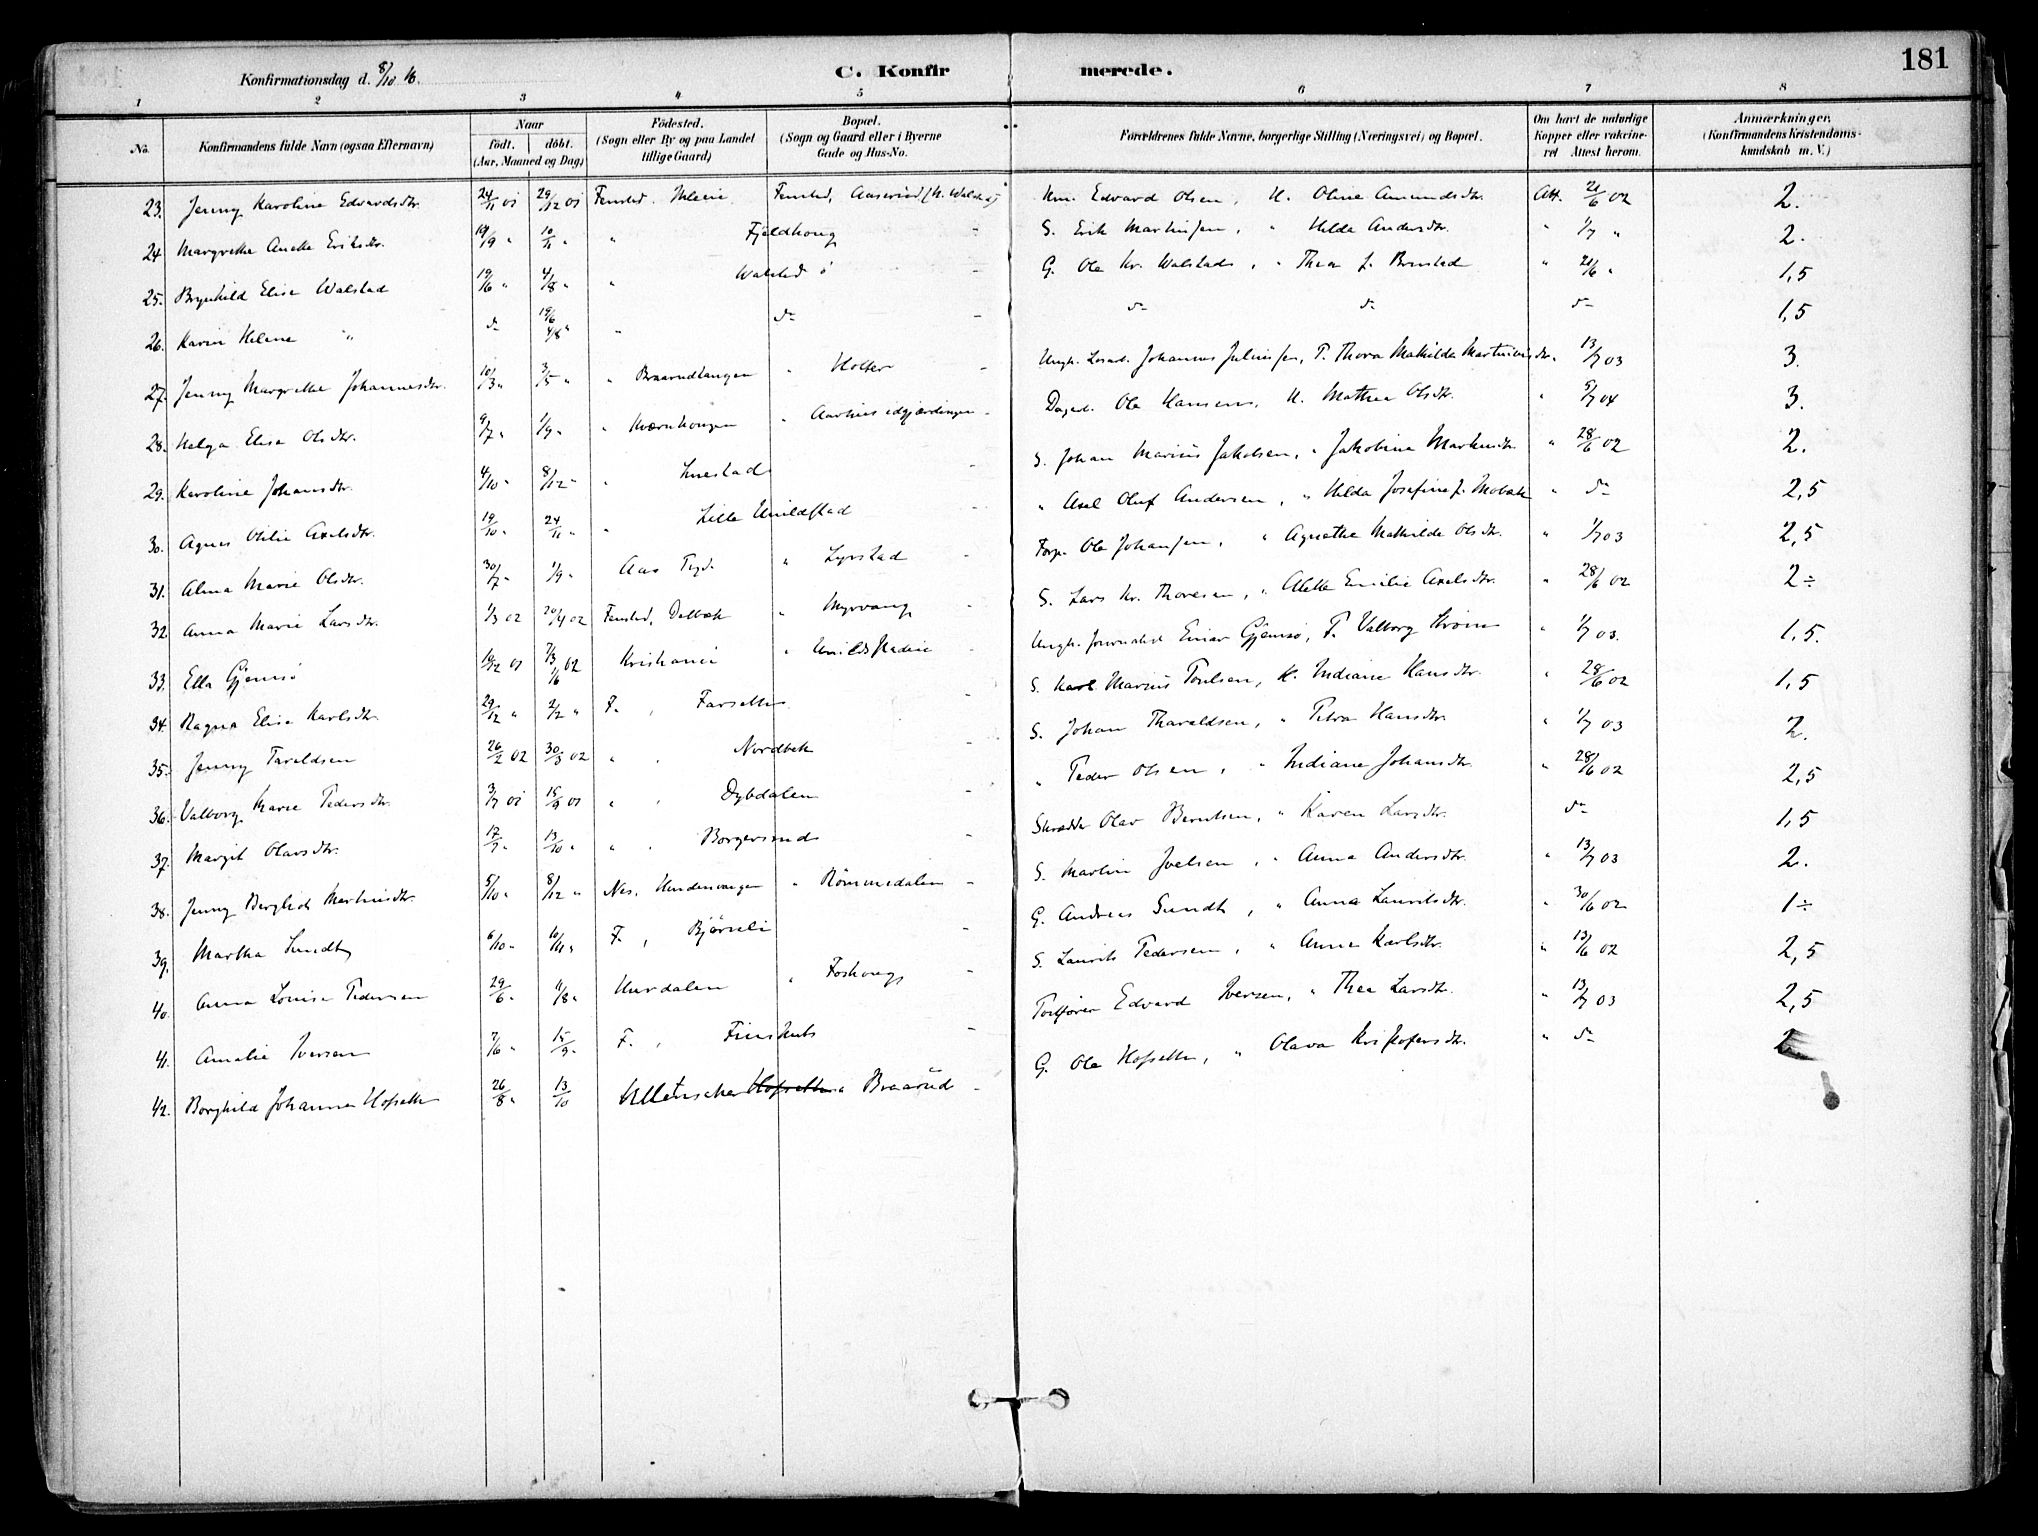 181
Konfirmationsdag d. 8/10 16. C. Konfirmerede.
1 2 3 4 5 6 7 8
No. Konfirmandens fulde Navn (ogsaa Efternavn) Naar født. døbt. (Aar, Maaned og Dag) Fødested. (Sogn eller By og paa Landet tillige Gaard) Bopæl. (Sogn og Gaard eller i Byerne Gade og Hus-No. Forældrenes fulde Navne, borgerlige Stilling (Næringsvei) og Bopæl. Om havt de naturlige Kopper eller vaccineret Attest herom. Anmærkninger. (Konfirmandens Kristendomskundskab m. V.)
23. Jenny Karoline Edvardsdtr. 24/11 01 29/12 01 Fensted, Fensted, Aaserud (N. Walstad) Edvard Olsen, H. Oline Amundsdtr. Att. 21/6 02 2.
24. Margrethe Anette Eriksdtr. 14/9 " 10/11 " " Fjeldhoug - S. Erik Martinsen, " Hilda Andersdtr. " 1/7 " 2.
25. Brynhild Elise Walstad 19/6 " 4/8 " " Walstad ø - G. Ole Kr. Walstad, " Thea f. Brustad " 21/6 " 1,5
26. Karin Helene " do 19/6 4/8 " " do - do do do 1,5
27. Jenny Margrethe Johannesdtr. 10/3 " 3/5 " " Braarudtangen " Holter - Ungk. Johannes Juliussen, P. Thora Mathilda Martinusdtr. " 13/7 03 3.
28. Helga Elise Olsdtr. 9/7 " 1/9 " " Kværnhougen " Aarnes - Dagarb. Ole Hansen, H. Mathea Olsdtr. " 5/7 04 3.
29. Karoline Johansdtr. 4/10 " 8/12 " " Luestad - S. Johan Marius Jakobsen, " Jakobine Martinsdtr. " 28/6 02 2.
30. Agnes Otilie Axelsdtr. 19/10 " 24/11 " " Lille - " Axel Oluf Andersen, " Hilda Josefine f. Mobæk " do 2,5
31. Alma Marie Olsdtr. 30/7 " 1/9 " Aas Tryd. " Lyrstad - Forp. Ole Johansen, " Agnethe Mathilde Olsdtr. " 1/7 03 2,5
32. Anna Marie Larsdtr. 1/3 02 20/4 02 Fensted, Dalbæk " Myrvang - S. Lars Kr. Thoresen, " Alette Emilie Axelsdtr. " 28/6 02 2 ÷
33. Ella Gjemsø 19/12 01 7/3 1/6 02 Kristiania " Ungk. Journalist Einar Gjemsø, P. Valborg Strøm " 1/7 03. 1,5.
34. Ragna Elise Karlsdtr. 29/12 " 2/2 " F. , Farsetter - S. Karl Marius Poulsen, H. Indiane Hansdtr. " 28/6 02 1,5
35. Jenny Taraldsen 26/2 02 30/3 02 " , Nordbek - S. Johan Tharaldsen, " Petra Hansdtr. " 1/7 03 2.
36. Valborg Marie Pedersdtr. 3/7 01 15/9 01 " , Dybdalen - " Peder Olsen, " Indiane Johansdtr. " 28/6 02 2,5
37. Margit Olavsdtr. 17/9 " 13/10 " " , Borgersrud - Skrædder Olav Berntsen, " Karen Larsdtr. do 1,5
38. Jenny Bergliot Martinsdtr. 5/10 " 8/12 " Nes, Hendenvangen " Rømmedalen - S. Martin Joelsen, " Anna Andersdtr. " 13/7 03 2.
39. Martha Sundt 6/10 " 10/11 " F. , Bjørneli - G. Andreas Sundt, " Anna Lauritsdtr. " 30/6 02 1 ÷
40. Anna Louise Pedersen 29/6 " 11/8 " Hurdalen " Foshoug - S. Laurits Pedersen, " Anna Karlsdtr. " 13/6 02 2,5
41. Amalie Iversen 7/6 " 15/9 " F. , - Edvard Iversen, " Thea Larsdtr. " 13/7 03 2,5
42. Borghild Johanne Hofsetter 26/8 " 13/10 Ullensaker Hofsetter Braarud - G. Ole Hofsetter, " Olava Kristofersdtr. " do 2